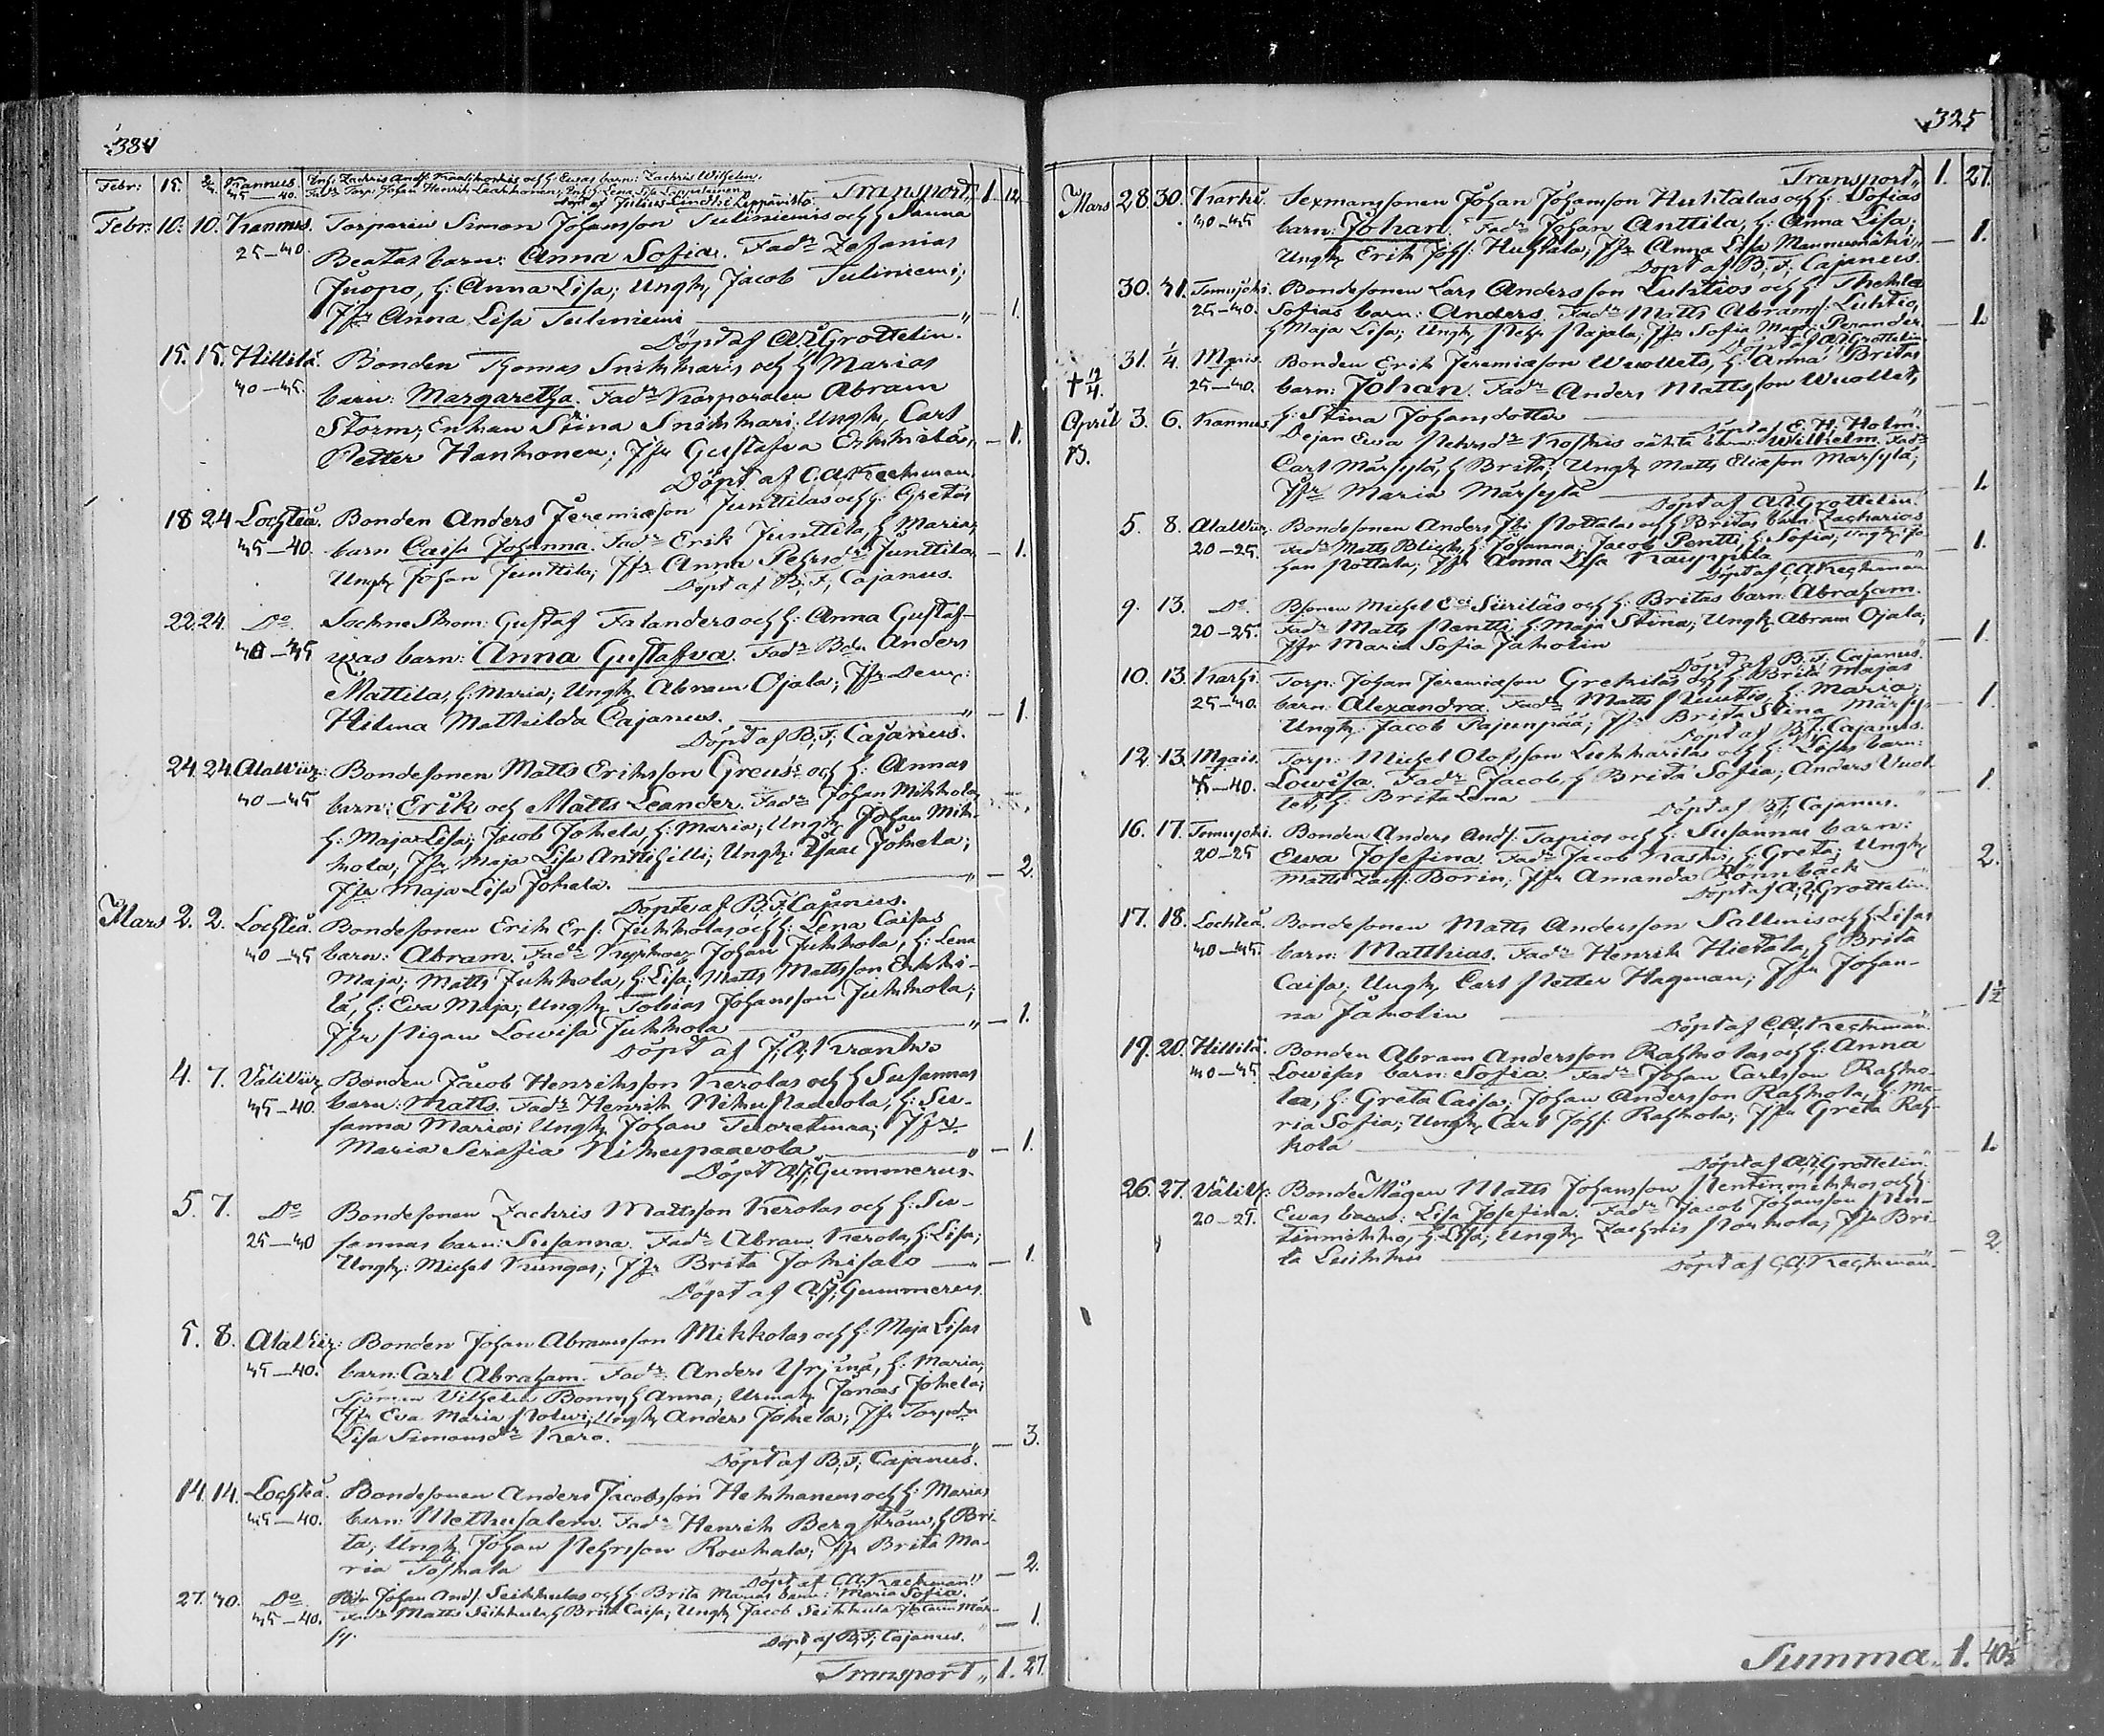 384
Febr: 15. Kannus Inh: Zachris Andf. och h. Evas barn: Zachris Wilhelm.
35-40. Fadr Torp: Johan Henrik Inh: h: Lena Lisa
Döpt af Julius Lindh i Leppävirta. Transport, 1. 12
Febr: 10. 10. Kannus. Torparen Simon Johansson Tuliniemis och h: Sanna
25-30. Beatas barn: Anna Sofia. Fadr Zefanias
Juopo, h: Anna Lisa; Ungk, Jacob Tuliniemi;
Jfr Anna Lisa Tuliniemi — 1.
Döpt af A. L. Grottelin.
15. 15. Hillilä. Bonden Thomas Snikkaris och h: Marias
30-35. barn: Margaretha. Fadr Korporalen Abram
Storm; Enkan Stina Snikkari; Ungk, Carl
Petter Hankonen; Jfr Gustafva Erkkilä, — 1.
Döpt af C. A. Keckman.
18 24 Lochteå. Bonden Anders Jeremiæson Junttilas och h: Gretas
35-40. barn Caisa Johanna. Fadr Erik Junttila, h: Maria;
Ungk Johan Junttila; Jfr Anna Pehrsdr Junttila. — 1.
Döpt af B. F. Cajanus.
22. 24. Do. Sockne Skom: Gustaf Falanders och h: Anna Gustaf-
30-35 vas barn: Anna Gustafva. Fadr Bdn Anders
Mattila, h: Maria; Ungk, Abram Ojala; Jfr Dem:
Hilma Mathilda Cajanus. — 1.
Döpt af B. F. Cajanus.
24. 24. Alaviir: Bondesonen Matts Eriksson Greus's och h: Annas
30-35 barn: Erik och Matts Leander. Fadr Johan Mikkola,
h: Maja Lisa; Jacob Jokela, h: Maria; Ungk, Johan Mik-
kola; Jfr Maja Lisa Anttihilli; Ungk: Isaac Jokela;
Jfr Maja Lisa Jokela. — 2.
Döpte af B. F. Cajanus.
Mars 2. 2. Lochteå. Bondesonen Erik Erf: Jukkolas och h: Lena Caisas
30-35 barn: Abram. Fadr Johan Jukkola, h: Lena
Maja; Matts Jukkola, h: Lisa; Matts Mattsson Erkki-
lä, h: Eva Maja; Ungk, Tobias Johansson Jukkola;
Jfr Pigan Lowisa Jukkola — 1.
Döpt af J. A. Krank
4. 7. Väliviir Bonden Jacob Henriksson Kerolas och h: Susannas
35-40. barn: Matts. Fadr Henrik Niku Pavola, h: Su-
sanna Maria; Ungk Johan Tuoretmaa; Jfr
Maria Serafia Nikupaavola — 1.
Döpt A. J. Gummerus.
5. 7. Do Bondesonen Zachris Mattsson Kerolas och h: Su-
25-30 sannas barn: Susanna. Fadr Abram Kerola, h: Lisa;
Ungk: Michel Kungas; Jfr Brita Jokisalo — 1
Döpt af A. J. Gummerus.
5. 8. Alaviir: Bonden Johan Abramsson Mikkolas och h: Maja Lisas
35-40. barn: Carl Abraham. Fadr: Anders Yrjänä, h: Maria;
Sjöman Vilhelm Bonn, h: Anna; Jonas Jokela;
Jfr Eva Maria Ungk Anders Jokela; Jfr
Lisa Simonsdr Karo. — 3.
Döpt af B. F. Cajanus.
14. 14. Lochteå. Bondesonen Anders Jacobsson Hekkanens och h: Marias
35-40. barn: Methusalem. Fadr Henrik Bergström, h: Bri-
ta; Ungk Johan Pehrsson Roukala; Jfr Brita Ma-
ria — 2.
Döpt af C. A. Keckman.
27. 30. Do. Bdn Johan Andf. Seikkulas och h: Brita Marias barn: Maria Sofia.
35-40. Fadr Matts Seikkula, h: Brita Caisa; Ungk, Jacob Seikkula, Jfr Carin Mär-
sy. — 1.
Döpt af B. F. Cajanus.
Transport, 1. 27.
325
Transport, 1. 27.
Mars 28. 30. Karhi. Sexmanssonen Johan Johansson Huktalas och h: Sofias
30-35 barn: Johan. Fadr Johan Anttila, h: Anna Lisa;
Ungk, Erik Johf: Huhtala; Jfr Anna Lisa — 1.
Döpt af B. F. Cajanus.
30. 31. Tomujoki. Bondesonen Lars Andersson Luhtios och h: Thekla
25-30. Sofias barn: Anders. Fadr Matts Abramf: Luhtio,
h: Maja Lisa; Ungk, Pehr Pajala; Jfr Sofia Perander. — 1.
Döpt af A. L. Grottelin
† 12/4. 31. 1/4. Mgais. Bonden Erik Jeremiæson Wuollets, h: Anna Britas
25-30. barn: Johan. Fadr Anders Mattsson Wuollet,
h: Stina Johansdotter — —
Döpt af E. H. Holm.
April 3. 6. Kannus. Dejan Ewa Pehrsdr Koskis oäkta barn: Wilhelm. Fadr
13. Carl Märsylä, h: Brita; Ungk Matts Eliæson Märsylä;
Jfr Maria Märsylä — 1.
Döpt af A. L. Grottelin.
5. 8. Alaviir. Bondesonen Anders Pottalas och h: Britas barn: Zacharias.
20-25. Fadr Matts h: Johanna; Jacob Pentti, h: Sofia; Ungk: Jo-
han Pottala; Jfr Anna Lisa Kauppila — 1.
Döpt af C. A. Keckman
9. 13. Do. Bsonen Michel Siirilas och h: Britas barn: Abraham.
20-25. Fadr Matts Pentti, h: Maja Stina; Ungk, Abram Ojala;
Jfr Maria Sofia Jakolin — 1.
Döpt af B. F. Cajanus.
10. 13. Karhi. Torp: Johan Jeremiæson Grekiläs och h: Brita Majas
25-30. barn: Alexandra. Fadr Matts h: Maria;
Ungk: Jacob Pajunpää; Jfr Brita Stina Märsy — 1.
Döpt af B. F. Cajanus.
12. 13. Mgais. Torp: Michel Olofsson Lukkarilas och h: Lisas barn:
35-40. Lowisa. Fadr Jacob, h: Brita Sofia; Anders Vuol-
let, h: Brita Lena — 1.
Döpt af B. F. Cajanus.
16. 17. Tomujoki. Bonden Anders Andf: Tapios och h: Susannas barn:
20-25 Ewa Josefina. Fadr Jacob Kaski, h: Greta; Ungk,
Matts Zachf: Borin; Jfr Amanda Rönnbäck — 2.
Döpt af A. L. Grottelin.
17. 18. Lochteå. Bondesonen Matts Andersson Sallinis och h: Lisas
30-35. barn: Matthias. Fadr Henrik Hietala, h: Brita
Caisa; Ungk, Carl Petter Hagman; Jfr Johan-
na Jakolin — 1 1/2
Döpt af C. A. Keckman.
19. 20. Hillilä. Bonden Abram Andersson Rahkolas och h: Anna
30-35 Lowisas barn: Sofia. Fadr Johan Carlsson Rahko-
la, h: Greta Caisa; Johan Andersson Rahkola, h: Ma-
ria Sofia; Ungk, Carl Johf: Rahkola; Jfr Greta Rah-
kola — 1.
Döpt af A. L. Grottelin.
26. 27. Väliv: Bonde Mågen Matts Johansson Pentinmikkos och h:
20-25. Ewas barn: Lisa Josefina. Fadr Jacob Johansson Pen-
tinmikko, h: Lisa; Ungk, Zachris Porkola; Jfr Bri-
ta — 2.
Döpt af C. A. Keckman.
Summa, 1. 40 1/2